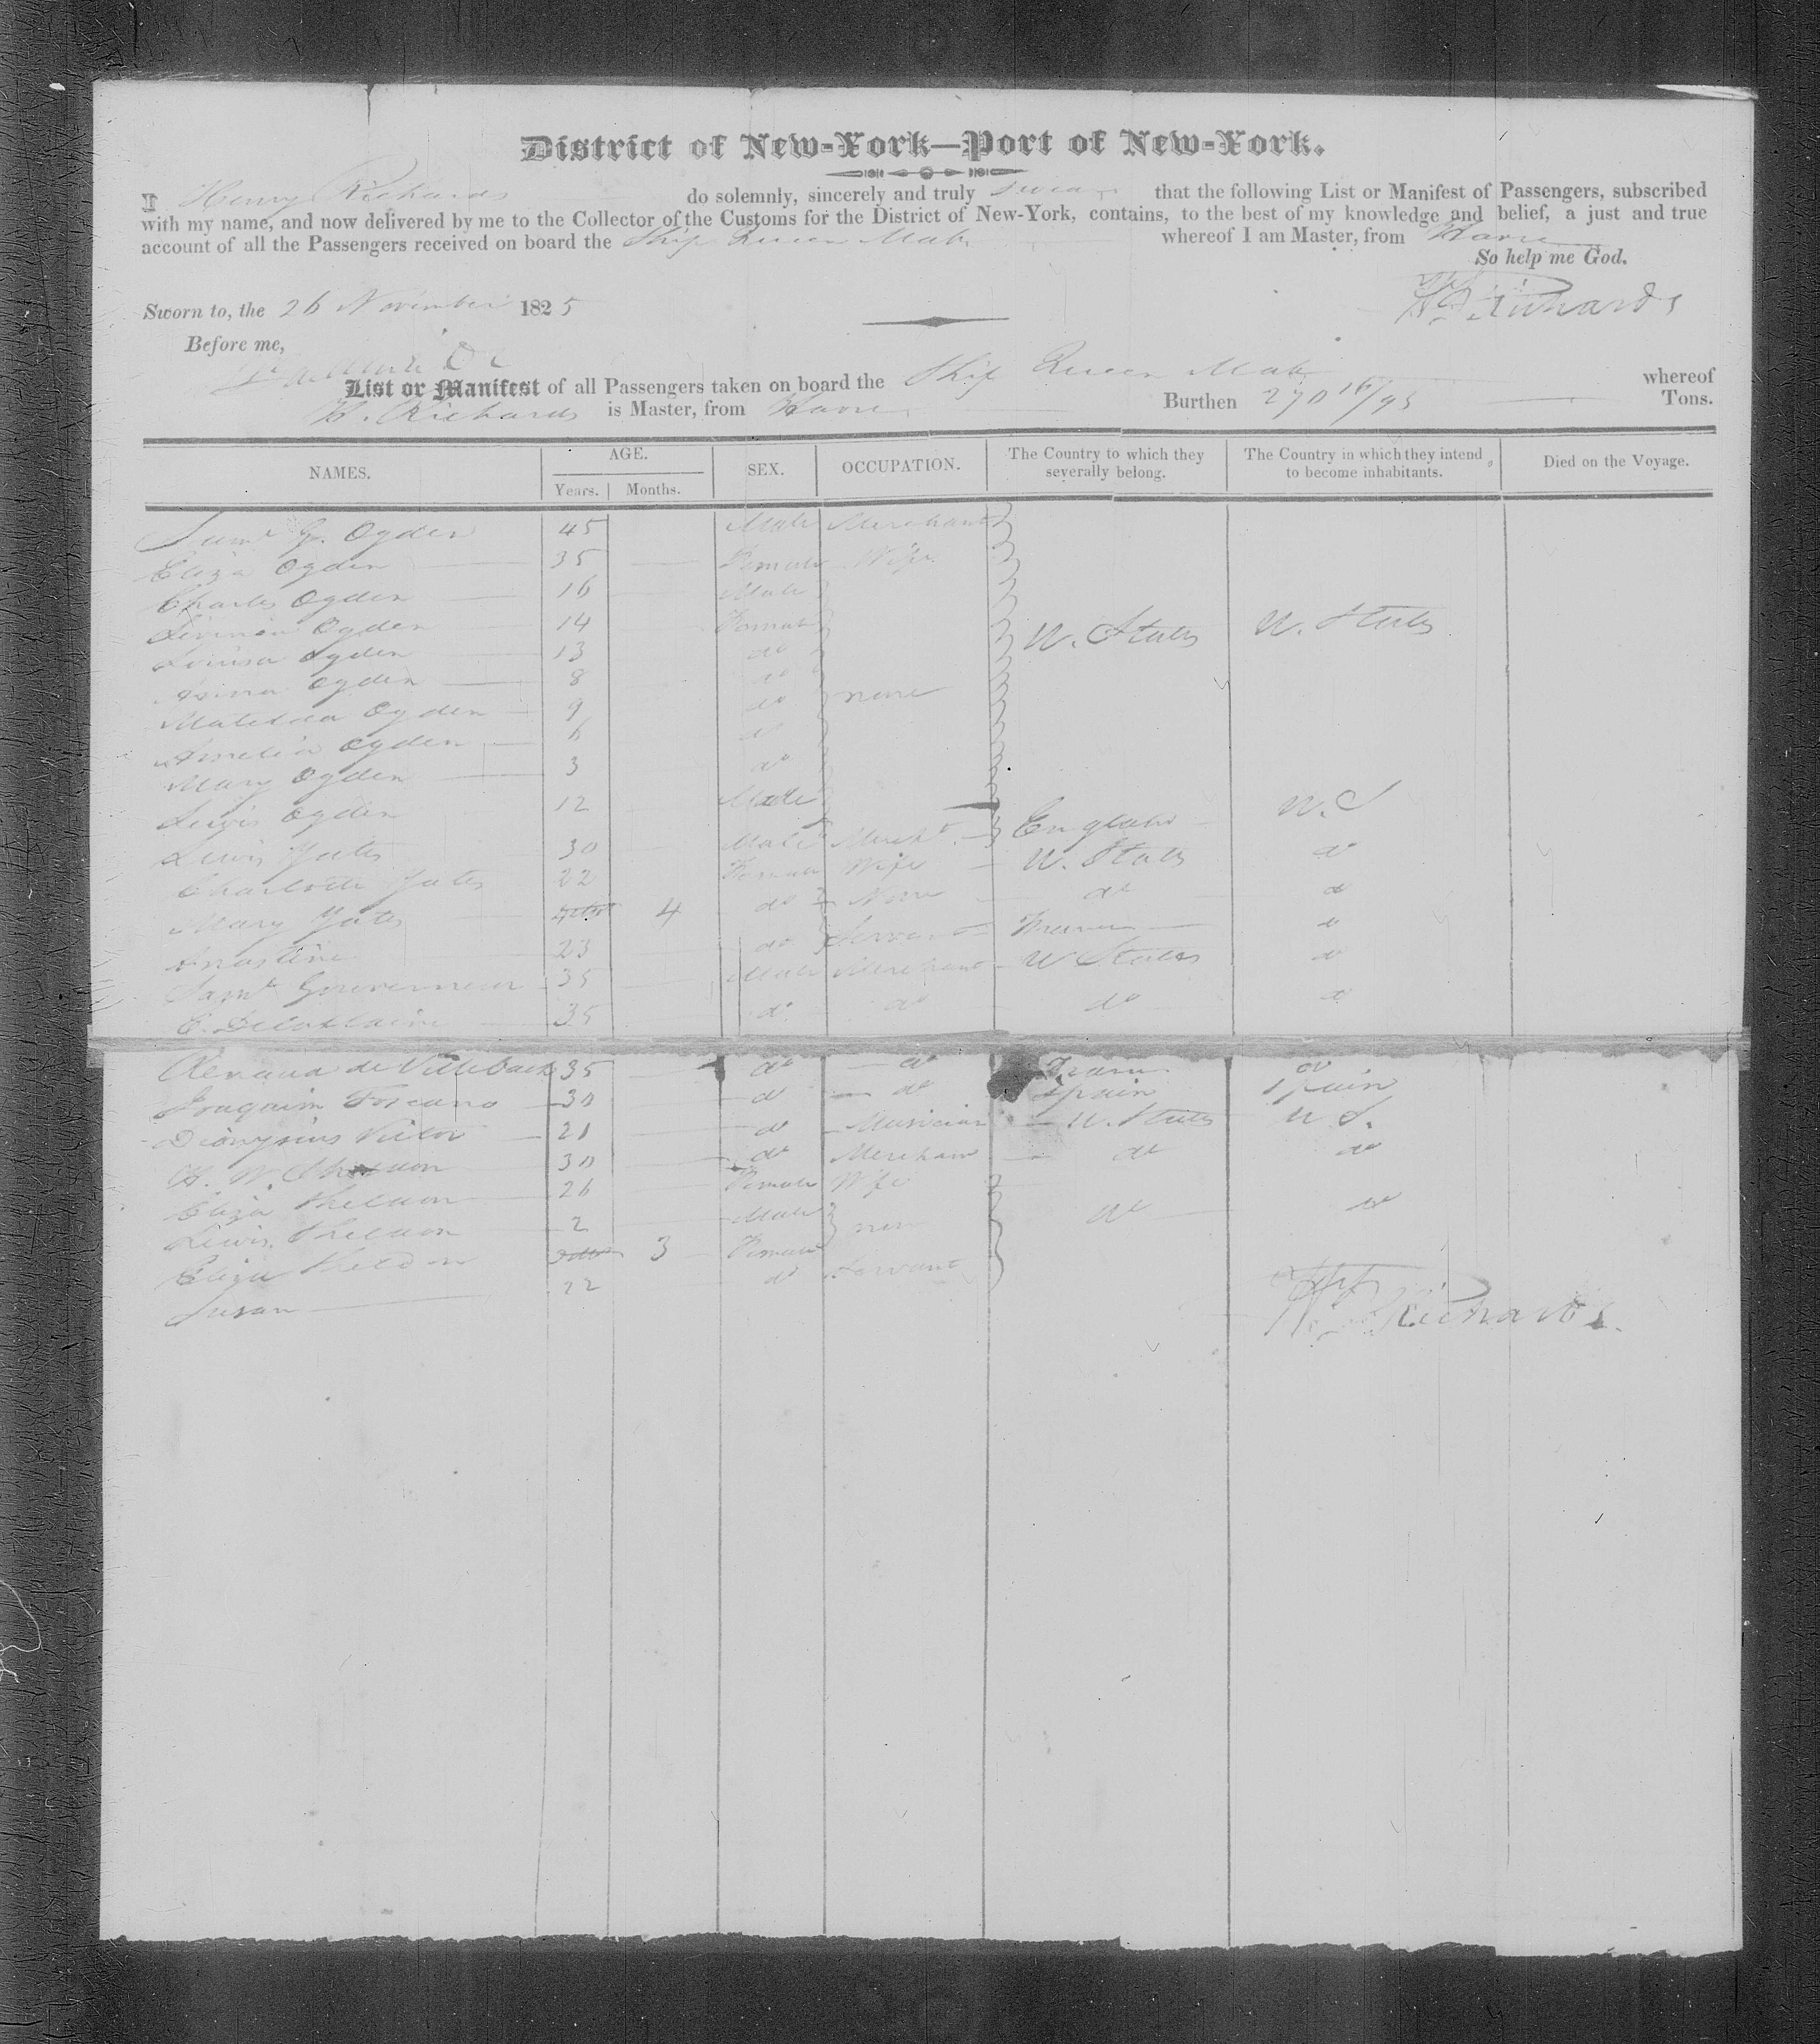 District of New-York—Port of New-York.
I Henry Richards do solemnly, sincerely and truly swear that the following List or Manifest of Passengers, subscribed
with my name, and now delivered by me to the Collector of the Customs for the District of New-York, contains, to the best of my knowledge and belief, a just and true
account of all the Passengers received on board the Ship Queen Mab whereof I am Master, from Havre
So help me God.
H Richards
Sworn to, the 26 November 1825
Before me,
List or Manifest of all Passengers taken on board the Ship Queen Mab whereof
H. Richards is Master, from Havre Burthen 270 16/95 Tons.
NAMES. AGE. Years. Months. SEX. OCCUPATION. The Country to which they severally belong. The Country in which they intend to become inhabitants. Died on the Voyage.
Saml G. Ogden 45 Male Merchant
Eliza Ogden 35 Female Wife
Charles Ogden 16 Male
Ogden 14 Female U. States U. States
Louisa Ogden 13 do
Ogden 8 do
Matilda Ogden 9 do none
Amelia Ogden 6 do
Mary Ogden 3 do
Lewis Ogden 12 Male
Lewis Yates 30 Male Mercht England U. S
Charlotte Yates 22 Female Wife U. States do
Mary Yates 4 do None do do
23 do Servant do
Saml Gouverneur 35 Male Merchant U States do
C. 35 do do do do
de 35 do do do
Joaquim Toscano 30 do do Spain Spain
Dionysius Victor 21 do Musician U. States U S.
H. W. Sheldon 30 do Merchant do do
Eliza Sheldon 26 Female Wife
Lewis Sheldon 2 Male none do do
Eliza Sheldon 3 Female
Susan 22 do Servant
H Richards